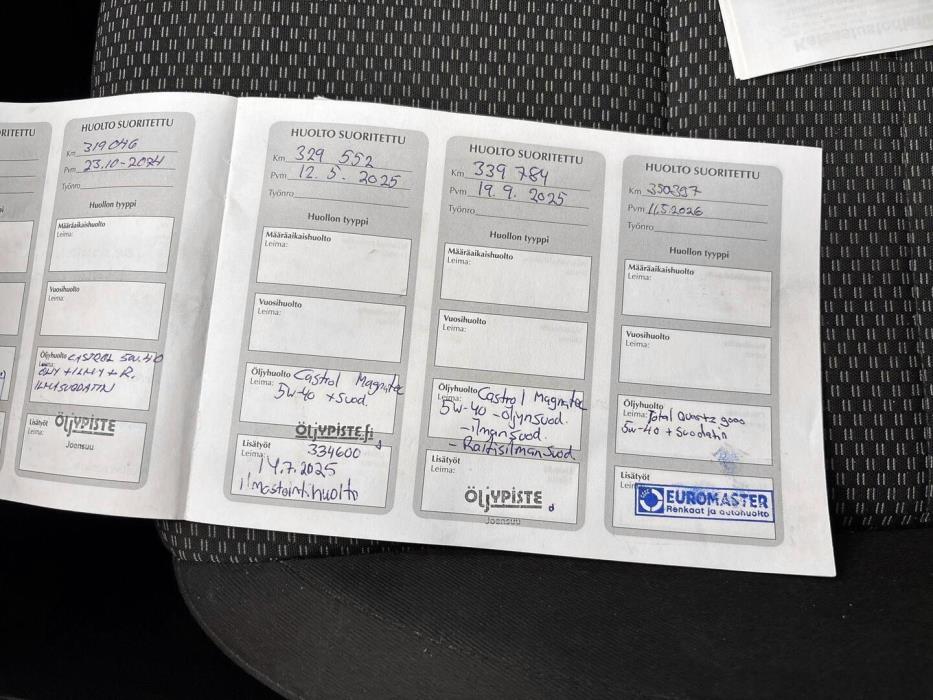 RITETTU
HUOLTO SUORITETTU
Km 319046
Pvm 23.10-2024
Työnro
Huollon tyyppi
Määräaikaishuolto
Leima:
Vuosihuolto
Leima:
Öljyhuolto CASTROL 5W-40
Leima:
ÖLJY + ILMA + R.
ILMSUODATIN
Lisätyöt
Leima:
ÖLJYPISTE
Joensuu
HUOLTO SUORITETTU
Km 329 552
Pvm 12.5.2025
Työnro
Huollon tyyppi
Määräaikaishuolto
Leima:
Vuosihuolto
Leima:
Öljyhuolto Castrol Magnatec
Leima: 5w-40 + suod.
ÖLJYPISTE.fi
Lisätyöt 334600
Leima:
14.7.2025
ilmastointihuolto
HUOLTO SUORITETTU
Km 339 784
Pvm 19.9.2025
Työnro
Huollon tyyppi
Määräaikaishuolto
Leima:
Vuosihuolto
Leima:
Öljyhuolto Castrol Magnatec
Leima: 5w-40 -öljynsuod.
-ilmansuod.
- Raitisilmansuod
Lisätyöt
Leima:
ÖLJYPISTE
Joensuu
HUOLTO SUORITETTU
Km 350397
Pvm 11.5.2026
Työnro
Huollon tyyppi
Määräaikaishuolto
Leima:
Vuosihuolto
Leima:
Öljyhuolto
Leima: Total Quartz 9000
5w-40 + suodatin
Lisätyöt
Leima:
EUROMASTER
Renkaat ja autohuolto